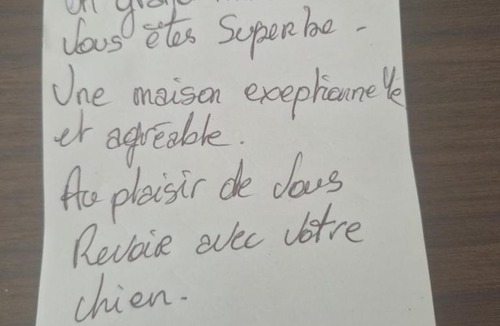 Un grand
Vous êtes Superbe -
Une maison exeptionnelle
et agréable.
Au plaisir de Vous
Revoir avec Votre
chien.